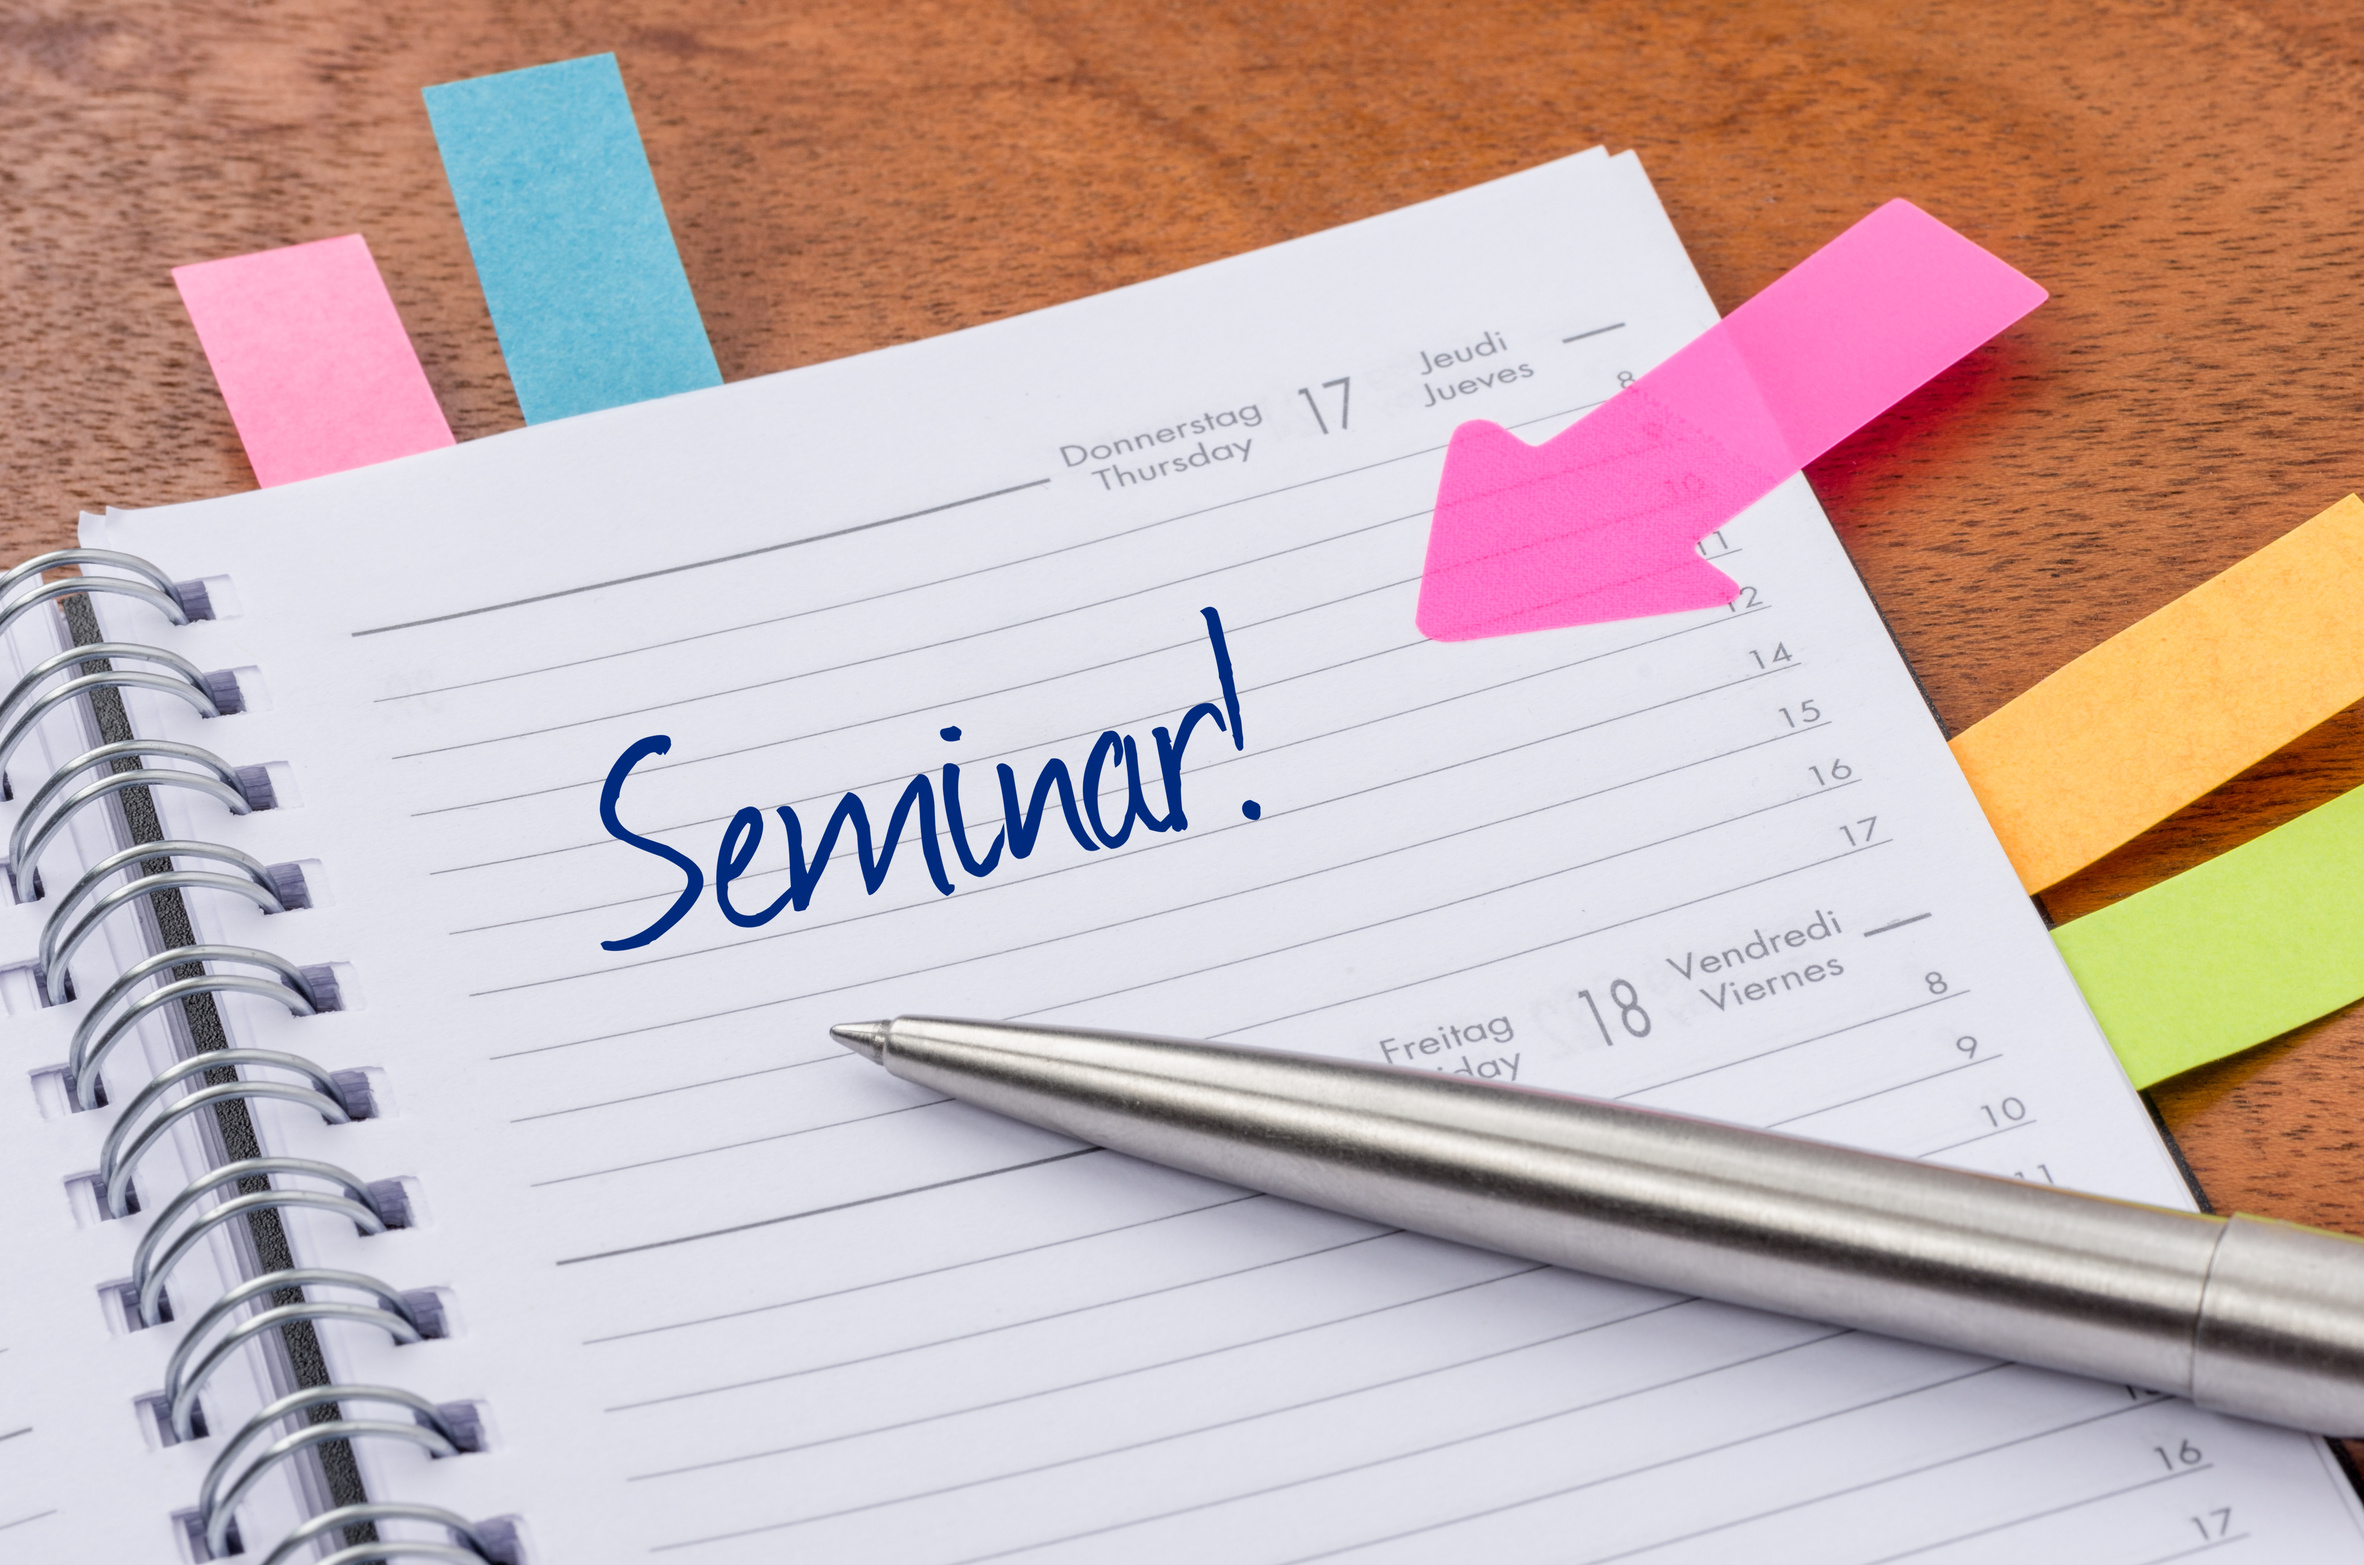 Donnerstag 17 Jeudi
Thursday Jueves
8
9
10
11
12
Seminar!
14
15
16
17
Freitag 18 Vendredi
Viernes
8
9
10
11
16
17